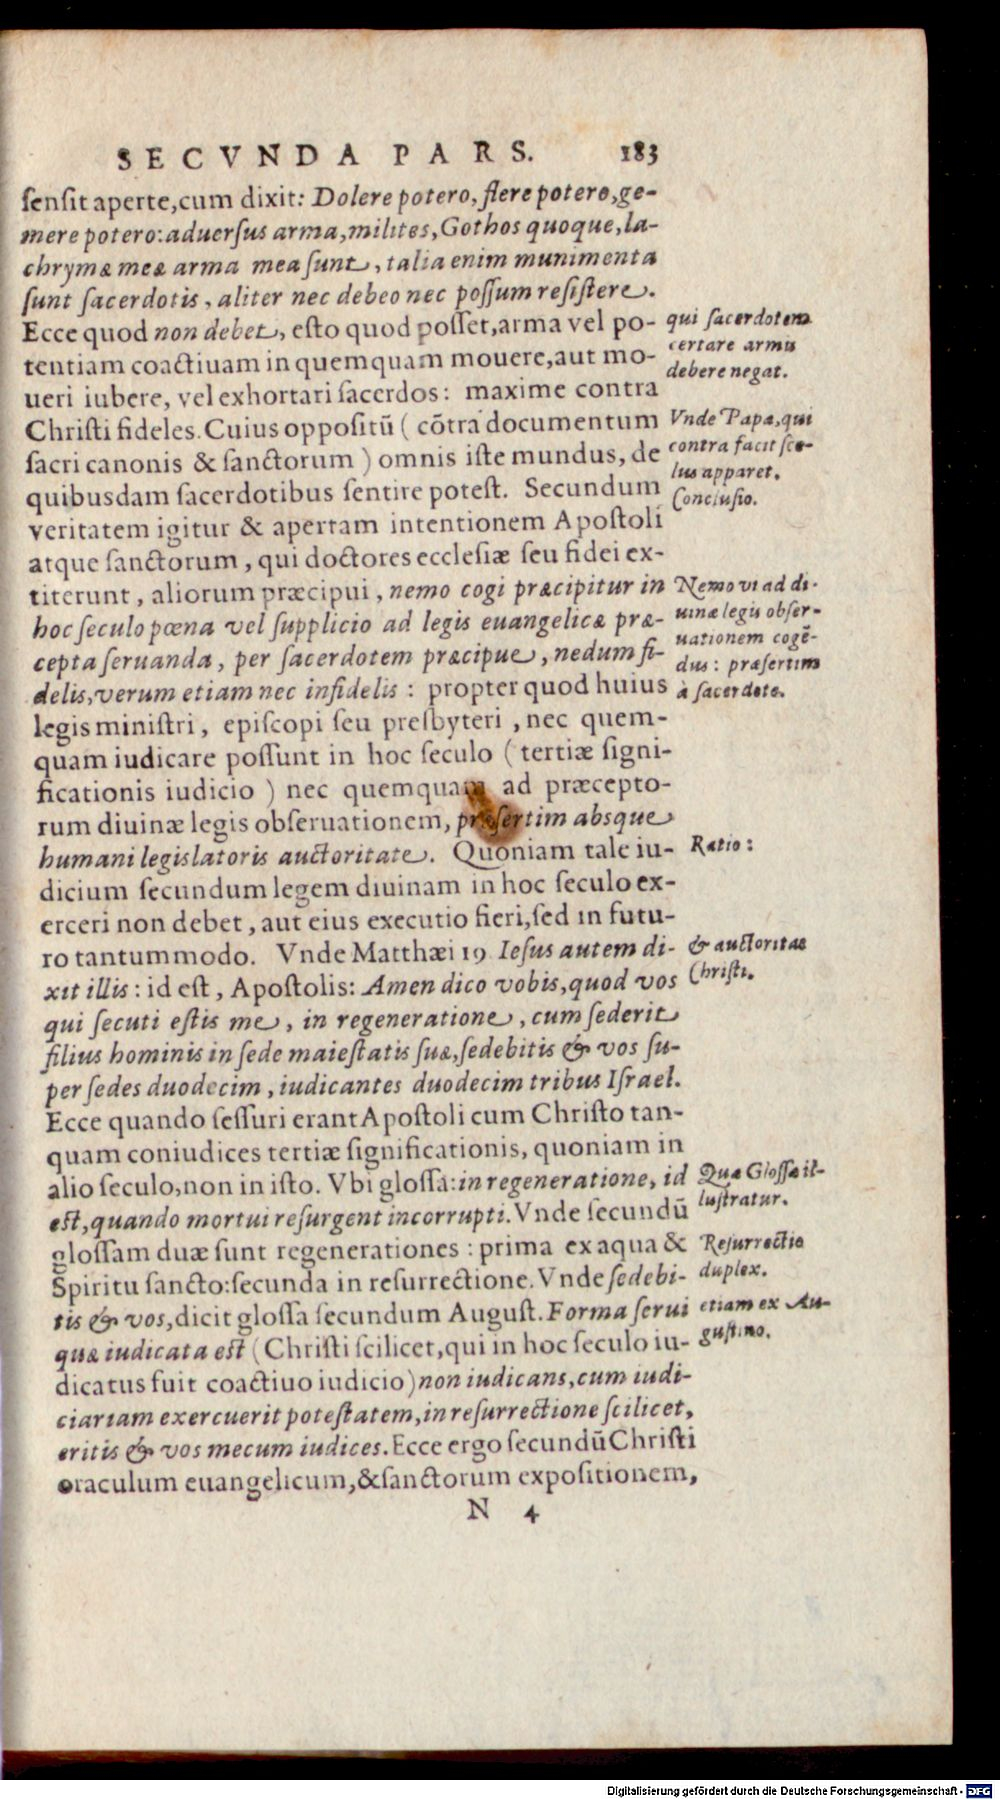 SECVNDA PARS. 183
sensit aperte, cum dixit: Dolere potero, flere potero, ge-
mere potero: aduersus arma, milites, Gothos quoque, la-
chrymæ meæ arma mea sunt, talia enim munimenta
sunt sacerdotis, aliter nec debeo nec possum resistere.
Ecce quod non debet, esto quod posset, arma vel po-
tentiam coactiuam in quemquam mouere, aut mo-
ueri iubere, vel exhortari sacerdos: maxime contra
Christi fideles. Cuius oppositū (cōtra documentum
sacri canonis & sanctorum) omnis iste mundus, de
quibusdam sacerdotibus sentire potest. Secundum
veritatem igitur & apertam intentionem Apostoli
atque sanctorum, qui doctores ecclesiæ seu fidei ex-
titerunt, aliorum præcipui, nemo cogi præcipitur in
hoc seculo pœna vel supplicio ad legis euangelicæ præ-
cepta seruanda, per sacerdotem præcipue, nedum fi-
delis, verum etiam nec infidelis: propter quod huius
legis ministri, episcopi seu presbyteri, nec quem-
quam iudicare possunt in hoc seculo (tertiæ signi-
ficationis iudicio) nec quemquam ad præcepto-
rum diuinæ legis obseruationem, præsertim absque
humani legislatoris auctoritate. Quoniam tale iu-
dicium secundum legem diuinam in hoc seculo ex-
erceri non debet, aut eius executio fieri, sed in futu-
ro tantummodo. Vnde Matthæi 19 Iesus autem di-
xit illis: id est, Apostolis: Amen dico vobis, quod vos
qui secuti estis me, in regeneratione, cum sederit
filius hominis in sede maiestatis suæ, sedebitis & vos su-
per sedes duodecim, iudicantes duodecim tribus Israel.
Ecce quando sessuri erant Apostoli cum Christo tan-
quam coniudices tertiæ significationis, quoniam in
alio seculo, non in isto. Vbi glossa: in regeneratione, id
est, quando mortui resurgent incorrupti. Vnde secundū
glossam duæ sunt regenerationes: prima ex aqua &
Spiritu sancto: secunda in resurrectione. Vnde sedebi-
tis & vos, dicit glossa secundum August. Forma serui
quæ iudicata est (Christi scilicet, qui in hoc seculo iu-
dicatus fuit coactiuo iudicio) non iudicans, cum iudi-
ciariam exercuerit potestatem, in resurrectione scilicet,
eritis & vos mecum iudices. Ecce ergo secundū Christi
oraculum euangelicum, & sanctorum expositionem,
N 4
qui sacerdotem
certare armis
debere negat.
Vnde Papa, qui
contra facit sce-
lus apparet.
Conclusio.
Nemo vi ad di-
uinæ legis obser-
uationem cogē-
dus: præsertim
à sacerdote.
Ratio:
& auctoritas
Christi.
Quæ Glossæ il-
lustratur.
Resurrectio
duplex.
etiam ex Au-
gustino.
Digitalisierung gefördert durch die Deutsche Forschungsgemeinschaft - DFG